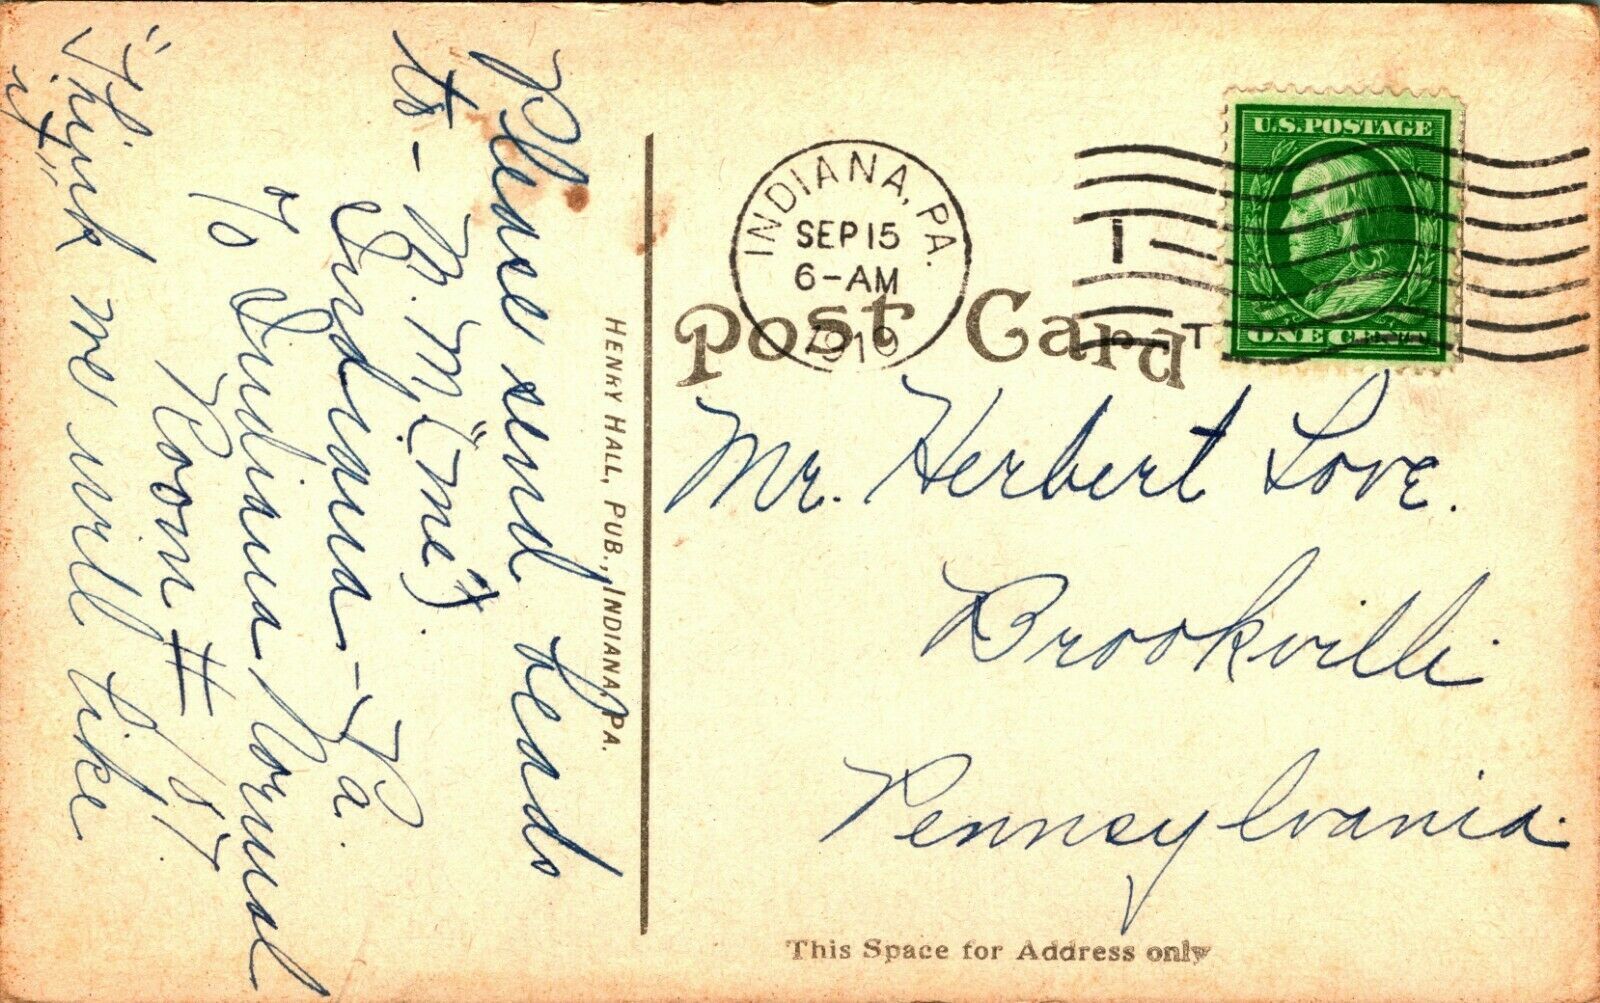 Please send beads
to - B. M. ("me").
Indiana - Pa.
% Indiana Normal
Room #
"Think we will like
it"
HENRY HALL, PUB., INDIANA, PA.
INDIANA, PA.
SEP 15
6-AM
1910
U.S. POSTAGE
ONE CENT
I
T
Post Card
Mr. Herbert Love.
Brookville
Pennsylvania.
This Space for Address only